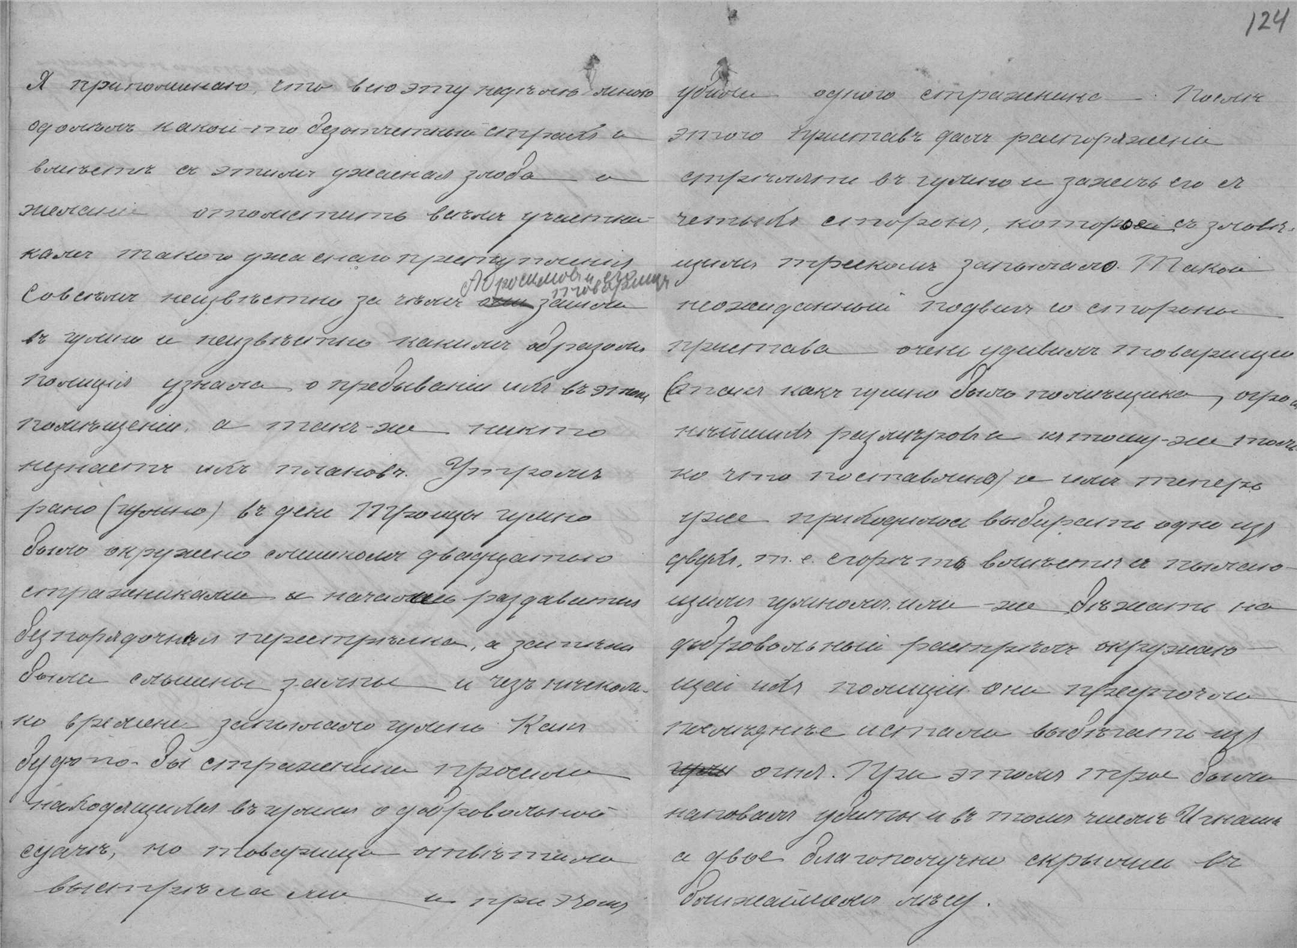 124
Я припоминаю, что всю эту неделю мною
одолѣлъ какой-то безотчетный страхъ и
вмѣстѣ съ этимъ ужасная злоба и
желаніе отомстить всѣмъ участни-
камъ такого ужаснаго преступленія
Абросимовъ и его товарищи
Совсѣмъ неизвѣстно за чѣмъ зашли
въ гумно и неизвѣстно какимъ образомъ
полиція узнала о пребываніи ихъ въ этомъ
помѣщеніи, а такъ-же никто
незнаетъ ихъ плановъ. Утромъ
рано (гумно) въ день Троицы гумно
было окружено слишкомъ двадцатью
стражниками и началась раздаваться
безпорядочная перестрѣлка, а затѣмъ
были слышны залпы и чезъ нѣсколь-
ко времени запылало гумно Какъ
будто-бы стражники просили
находящихся въ гумнѣ о добровольной
сдачѣ, но товарищи отвѣтили
выстрѣлами и при этомъ
убили одного стражника. Послѣ
этого приставъ далъ распоряженіе
стрѣлять въ гумно и зажечь его съ
четырехъ сторонъ, которое съ зловѣ-
щимъ трескомъ запылало. Такой
неожиданный подвигъ со стороны
пристава очень удивилъ товарищей
(такъ какъ гумно было помѣщика, огро-
мнѣйшихъ размѣровъ и къ тому-же толь-
ко что поставлено) и имъ теперь
уже приходилось выбирать одно изъ
двухъ, т.е. сгорѣть вмѣстѣ съ пылаю-
щимъ гумномъ или-же бѣжать на
добровольный разстрѣлъ окружаю-
щей ихъ полиціи. они предпочли
послѣднѣе и стали выбѣгать изъ
огня. При этомъ трое были
наповалъ убиты и въ томъ числѣ Игнашъ
а двое благополучно скрылись въ
ближайшемъ лѣсу.